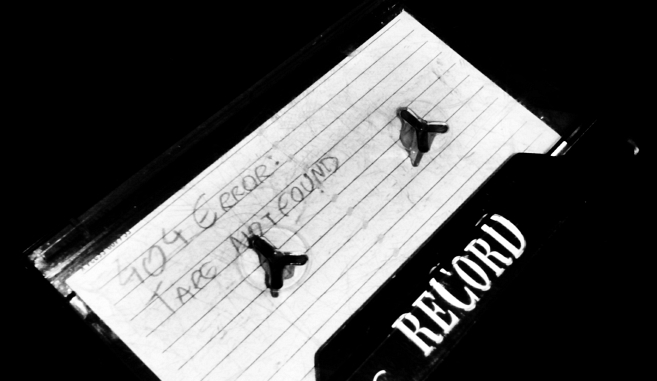 404 ERROR:
TAPE NOT FOUND
RECORD